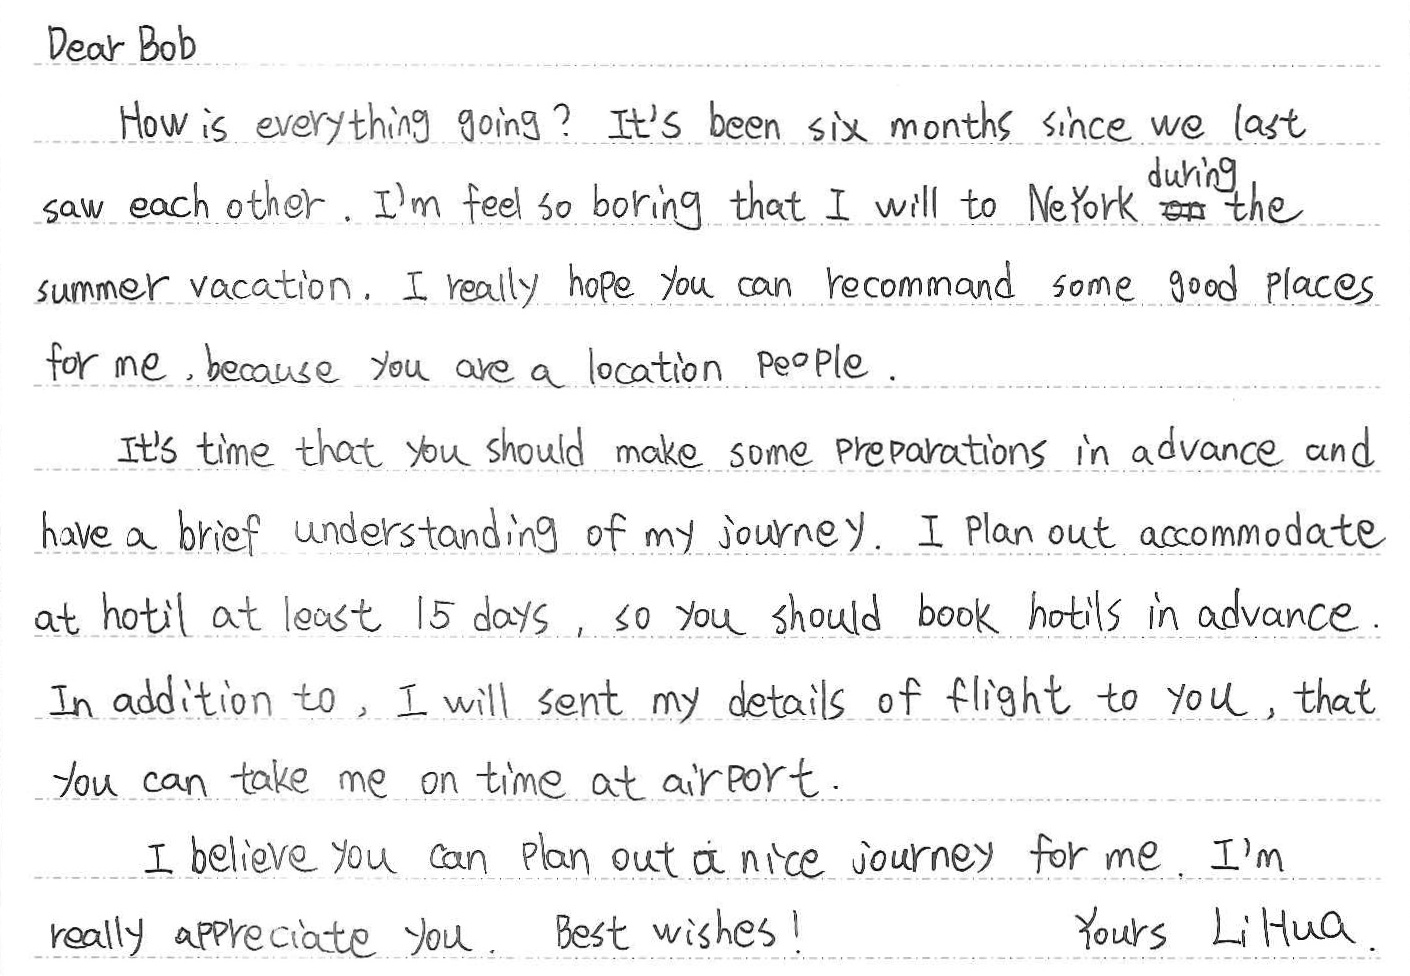 Dear Bob
How is everything going? It's been six months since we last
saw each other. I'm feel so boring that I will to NeYork during the
summer vacation. I really hope you can recommand some good places
for me, because you are a location people.
It's time that you should make some preparations in advance and
have a brief understanding of my journey. I plan out accommodate
at hotil at least 15 days, so you should book hotils in advance.
In addition to, I will sent my details of flight to you, that
you can take me on time at airport.
I believe you can plan out a nice journey for me. I'm
really appreciate you. Best wishes! Yours Li Hua.